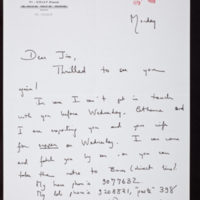 Monday
Dear Jim,
Thrilled to see you
again!
In case I can't get in touch
with you before Wednesday. Otherwise
I am expecting you and your wife
for on Wednesday. I can come
and fetch you by car, or you can
take the metro to (direct line).
My home phone's 9077632
My lab phone's 9208831, "poste" 398